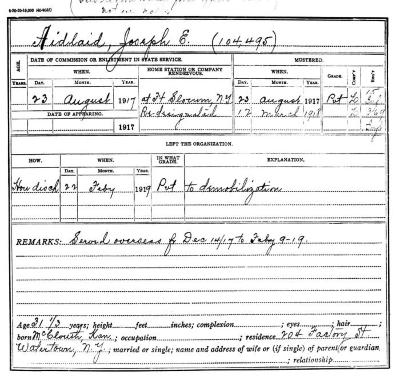 Aidlaid, Joseph E. (104,495)
DATE OF COMMISSION OR ENLISTMENT IN STATE SERVICE.
HOME STATION OR COMPANY RENDEZVOUS.
MUSTERED.
AGE.
WHEN.
WHEN.
GRADE.
YEARS.
DAY. MONTH. YEAR.
DAY. MONTH. YEAR.
23 August 1917 at Ft Slocum, N.Y. 23 August 1917 Pvt
DATE OF APPEARING.
12 March 1918
1917
LEFT THE ORGANIZATION.
HOW. WHEN. IN WHAT GRADE. EXPLANATION.
DAY. MONTH. YEAR.
Hon disch 22 Feby 1919 Pvt to demobilization
REMARKS: Served overseas fr Dec 14/17 to Feby 9-19.
Age 31 1/3 years; height feet inches; complexion ; eyes ; hair ;
born McClouth, Kan. ; occupation ; residence 204 Factory St
Watertown, N.Y. ; married or single; name and address of wife or (if single) of parent or guardian
; relationship